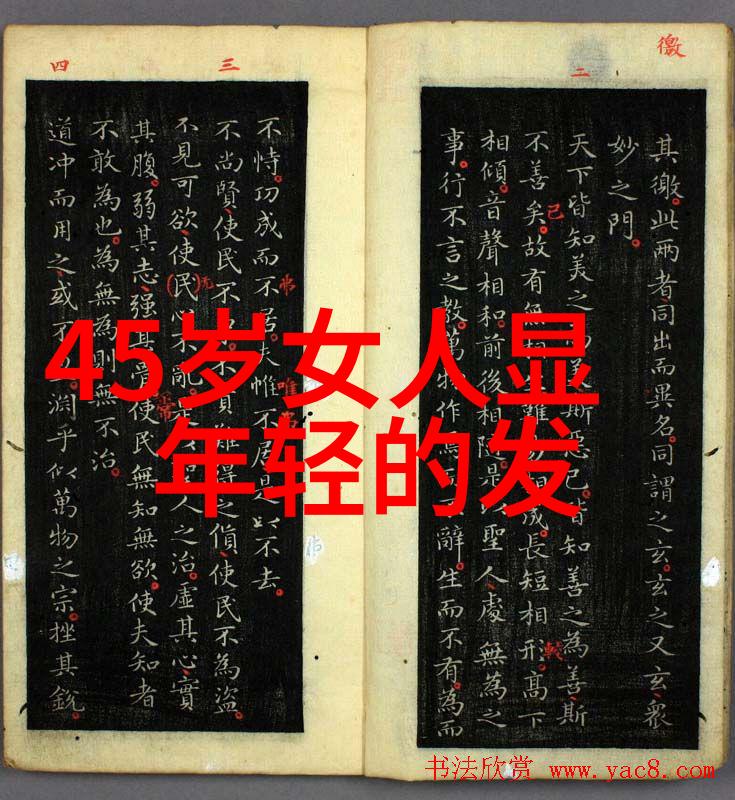 徼
二
其徼。此兩者同出而異名。同謂之玄。玄之又玄。衆
妙之門。
天下皆知美之斯惡已。皆知善之為善斯
不善矣。故有無相成。長短相形。高下
相傾。音聲相和。前後相隨。是以聖人處無為之
事。行不言之教。萬物作焉不辭。生而不有。為而
己
三
四
不恃。功成而不居。夫惟不居。是以不去。
不尚賢使民不不貴難得之貨使民不為盜。
不見可欲使民心不亂。人之治。虛其心實
其腹。弱其志强其骨使民無知無欲。使夫知者
不敢為也。為無為則無不治。
道冲而用之或不淵乎似萬物之宗。挫其銳。
无
常
唯
45岁女人显
年轻的发
书法欣赏 www.yac8.com